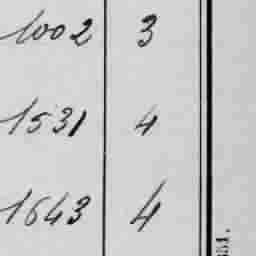 1002 3
1531 4
1643 4